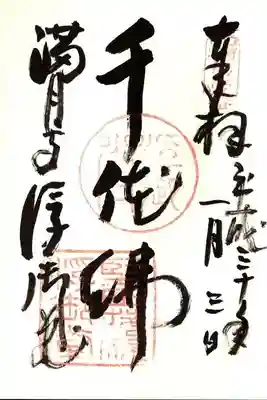 奉拝 平成三十年
一月三日
千体佛
満月寺浮御堂